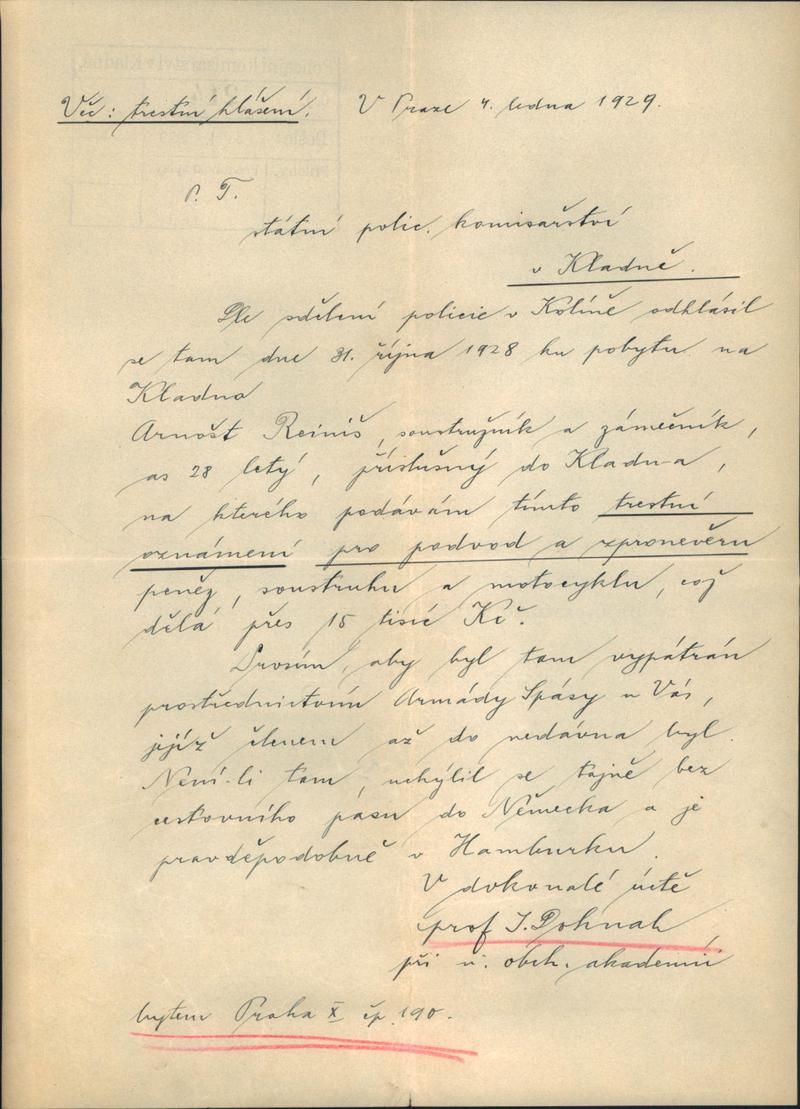 Věc: trestní hlášení. V Praze 4. ledna 1929.
P. T.
státní polic. komisařství
v Kladně.
Dle sdělení policie v Kolíně odhlásil
se tam dne 31. října 1928 ku pobytu na
Kladno
Arnošt Reiniš, soustružník a zámečník,
as 28 letý, příslušný do Kladna,
na kterého podávám tímto trestní
oznámení pro podvod a zpronevěru
peněz, soustruhu a motocyklu, což
dělá přes 15 tisíc Kč.
Prosím, aby byl tam vypátrán
prostřednictvím Armády Spásy u Vás,
jejíž členem až do nedávna byl.
Není-li tam, uchýlil se tajně bez
cestovního pasu do Německa a je
pravděpodobně v Hamburku.
V dokonalé úctě
prof J. Dohnal
při u. obch. akademii
bytem Praha X čp. 190.